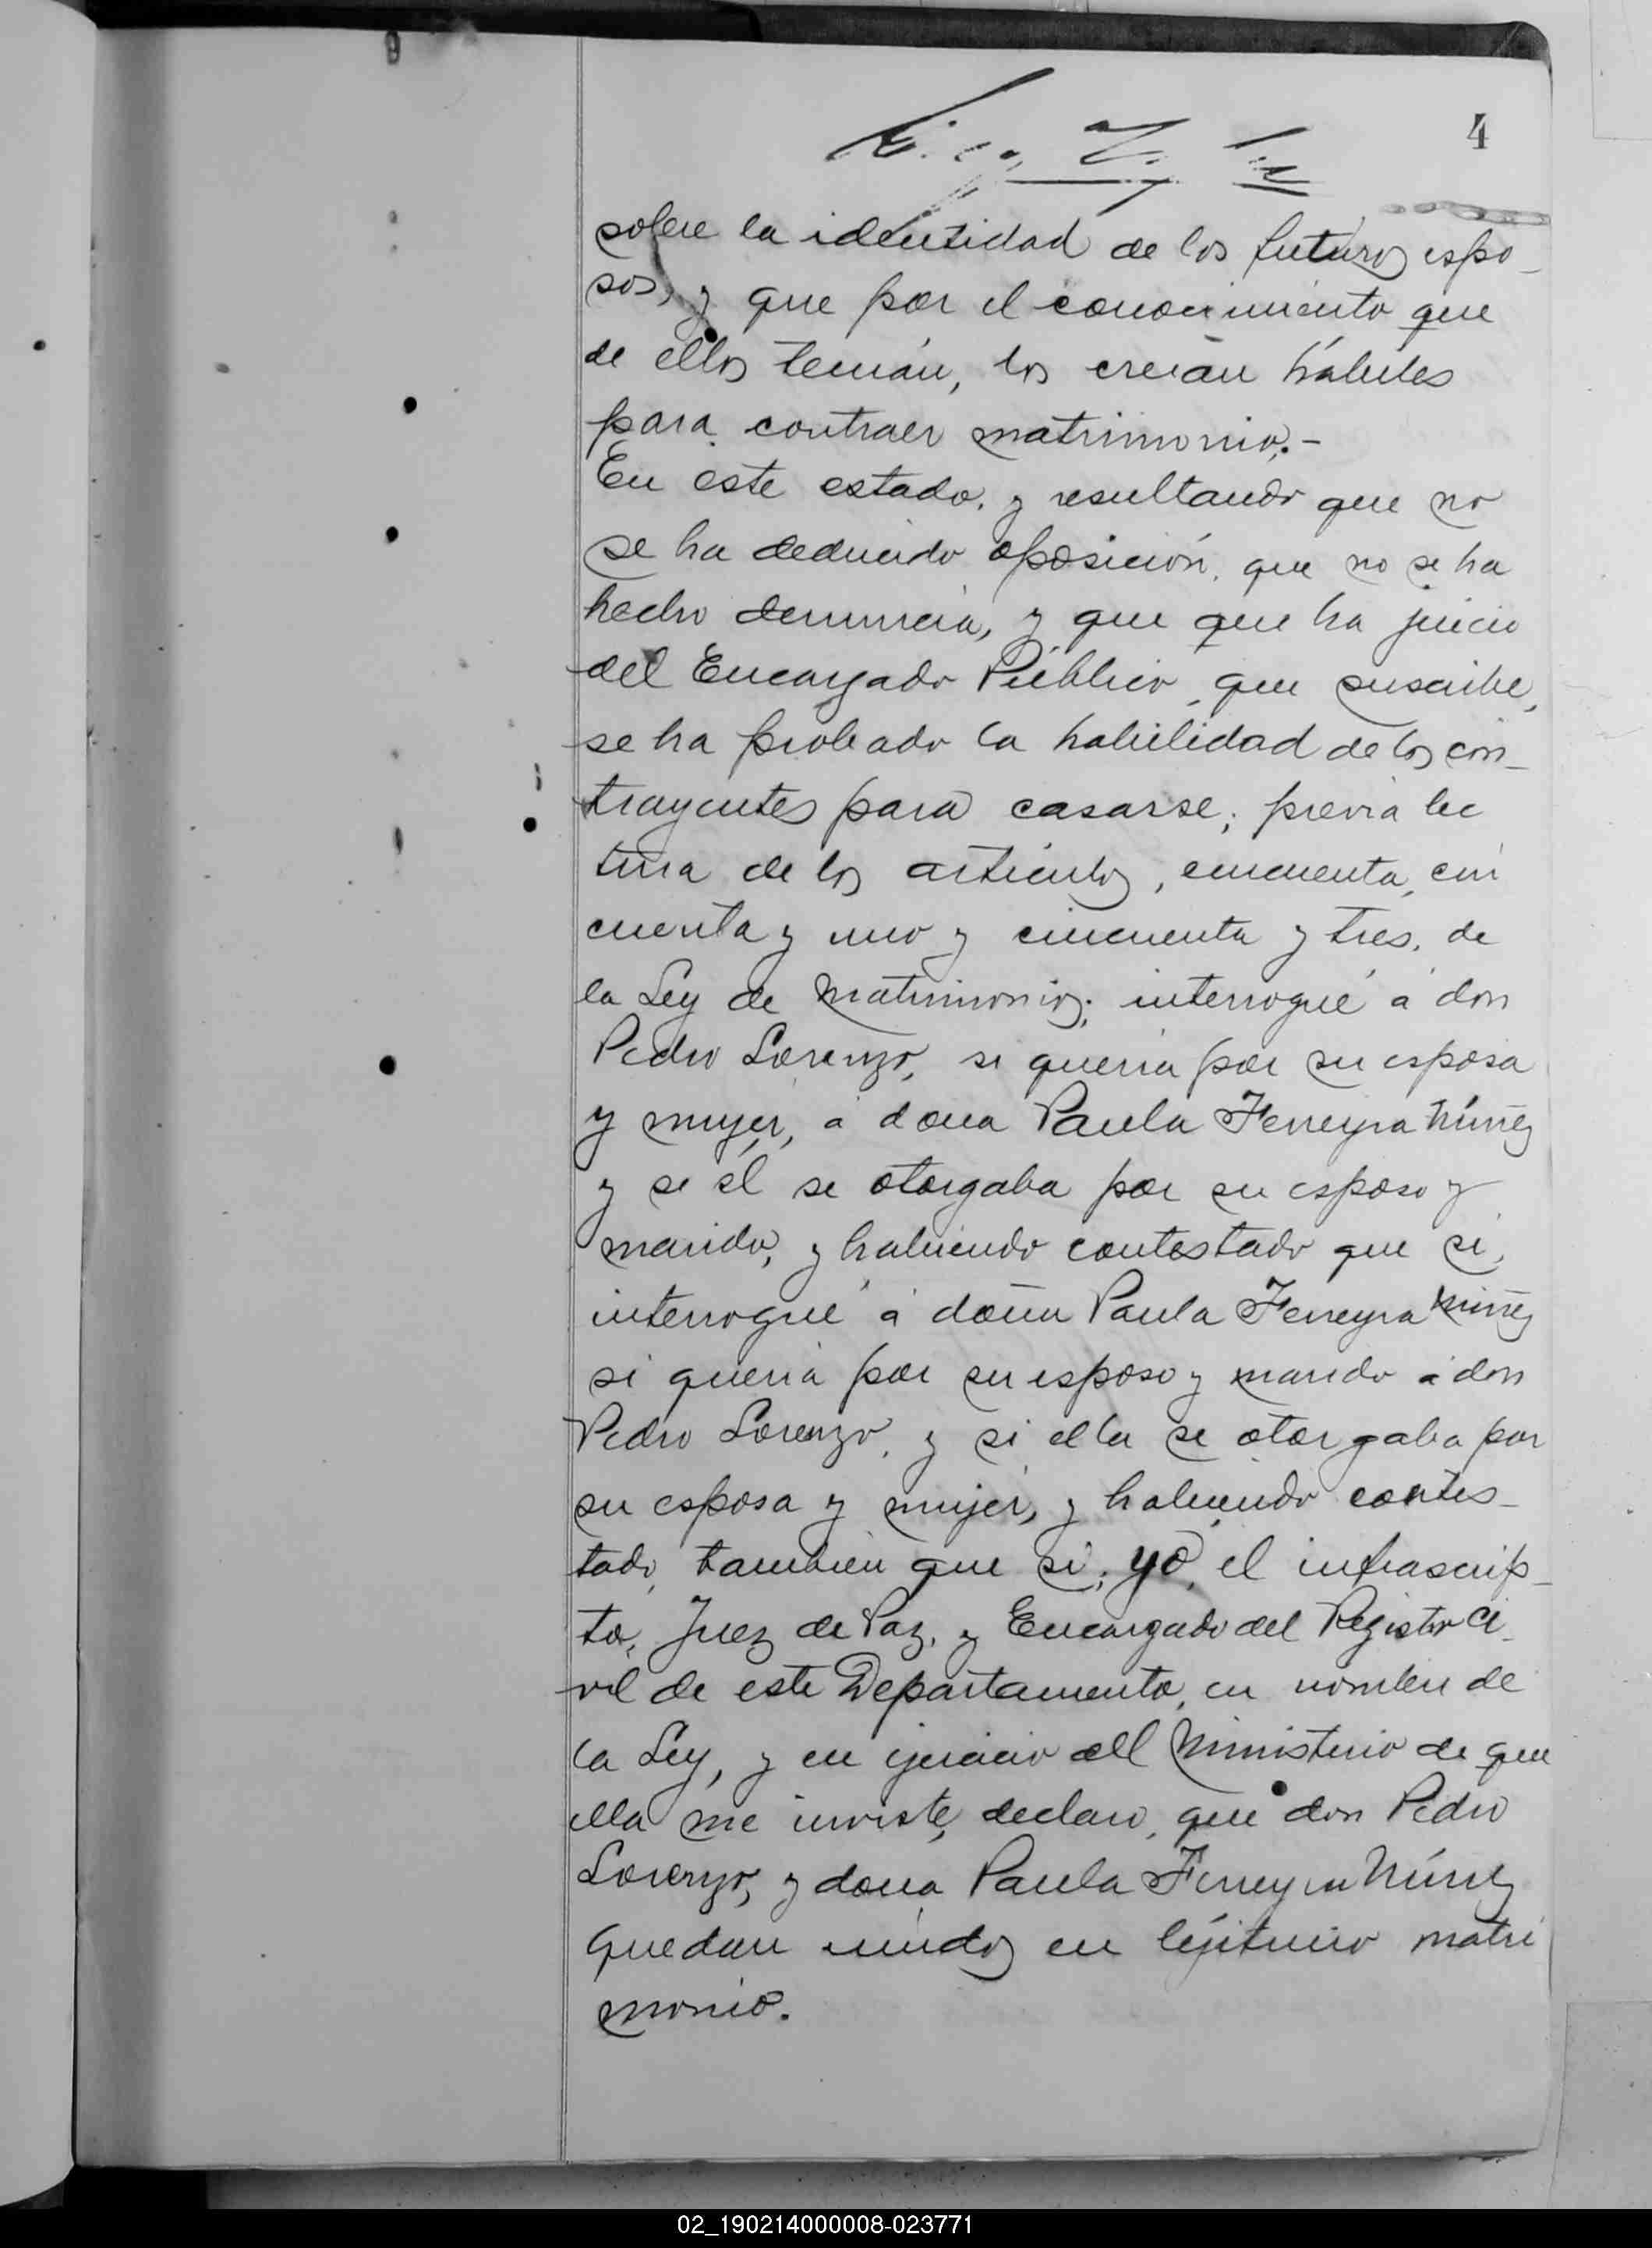 4
sobre la identidad de los futuros espo-
sos, y que por el conocimiento que
de ellos tenían, los creían hábiles
para contraer matrimonio.-
En este estado, y resultando que no
se ha deducido oposición, que no se ha
hecho denuncia, y que que ha juicio
del Encargado Público, que suscribe,
se ha probado la habilidad de los con-
trayentes para casarse; previa lec
tura de los artículos, cincuenta, cin
cuenta y uno y cincuenta y tres, de
la Ley de Matrimonios; interrogué á don
Pedro Lorenzo, si quería por su esposa
y mujer, á doña Paula Ferreyra Núñez
y si él se otorgaba por su esposo y
marido, y habiendo contestado que si,
interrogué á doña Paula Ferreyra Núñez
si quería por su esposo y marido á don
Pedro Lorenzo, y si ella se otorgaba por
su esposa y mujer, y habiendo contes-
tado, tambien que si; yo, el infrascrip-
to, Juez de Paz, y Encargado del Registro Ci-
vil de este Departamento, en nombre de
la Ley, y en ejercicio del Ministerio de que
ella me inviste, declaro, que don Pedro
Lorenzo, y doña Paula Ferreyra Núñez
quedan unidos en legítimo matri
monio.
02_190214000008-023771